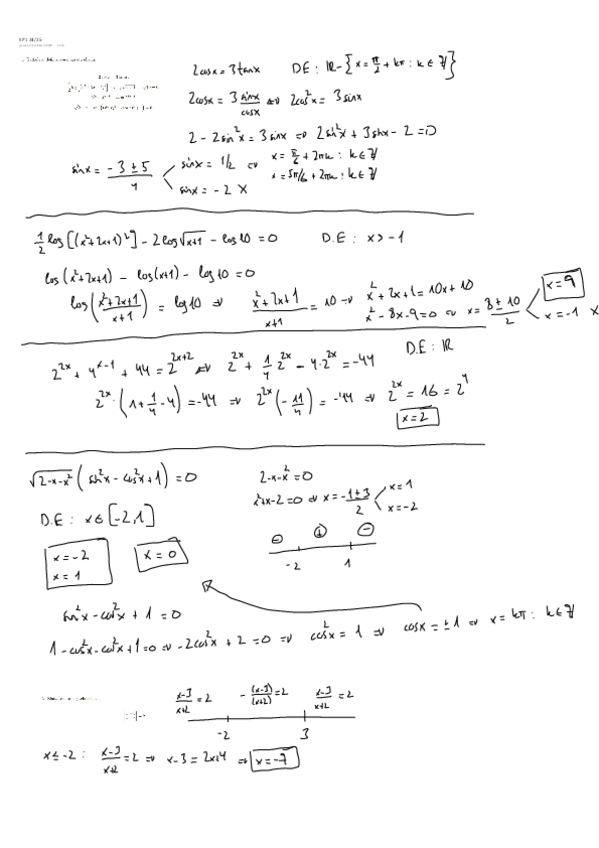 2cosx = 3tanx D.E: ℝ-{x = π/2 + kπ : k∈ℤ}
2cosx = 3 sinx/cosx ⇔ 2cos²x = 3sinx
2 - 2sin²x = 3sinx ⇒ 2sin²x + 3sinx - 2 = 0
sinx = (-3 ± 5)/4
sinx = 1/2 ⇔
x = 5π/6 + 2πk : k∈ℤ
sinx = -2 X
1/2 log[(x²+2x+1)²] - 2log√(x+1) - log10 = 0 D.E: x > -1
log(x²+2x+1) - log(x+1) - log10 = 0
log((x²+2x+1)/(x+1)) = log10 ⇒ (x²+2x+1)/(x+1) = 10 ⇒ x²+2x+1 = 10x+10
x² - 8x - 9 = 0 ⇔ x = (8 ± 10)/2
x = 9
x = -1 X
D.E: ℝ
2^2x + 4^x-1 + 44 = 2^2x+2 ⇔ 2^2x + 1/4 2^2x - 4·2^2x = -44
2^2x · (1 + 1/4 - 4) = -44 ⇒ 2^2x (-11/4) = -44 ⇒ 2^2x = 16 = 2^4
x = 2
√(2-x-x²) (sin²x - cos²x + 1) = 0 2-x-x² = 0
x²+x-2 = 0 ⇒ x = (-1 ± 3)/2
x = 1
x = -2
D.E: x∈[-2,1]
⊖ ⊕ ⊖
-2 1
x = -2
x = 1
x = 0
sin²x - cos²x + 1 = 0
1 - cos²x - cos²x + 1 = 0 ⇒ -2cos²x + 2 = 0 ⇒ cos²x = 1 ⇒ cosx = ±1 ⇒ x = kπ : k∈ℤ
(x-3)/(x+2) = 2 -(x-3)/(x+2) = 2 (x-3)/(x+2) = 2
-2 3
x ≤ -2 : (x-3)/(x+2) = 2 ⇒ x-3 = 2x+4 ⇒ x = -7